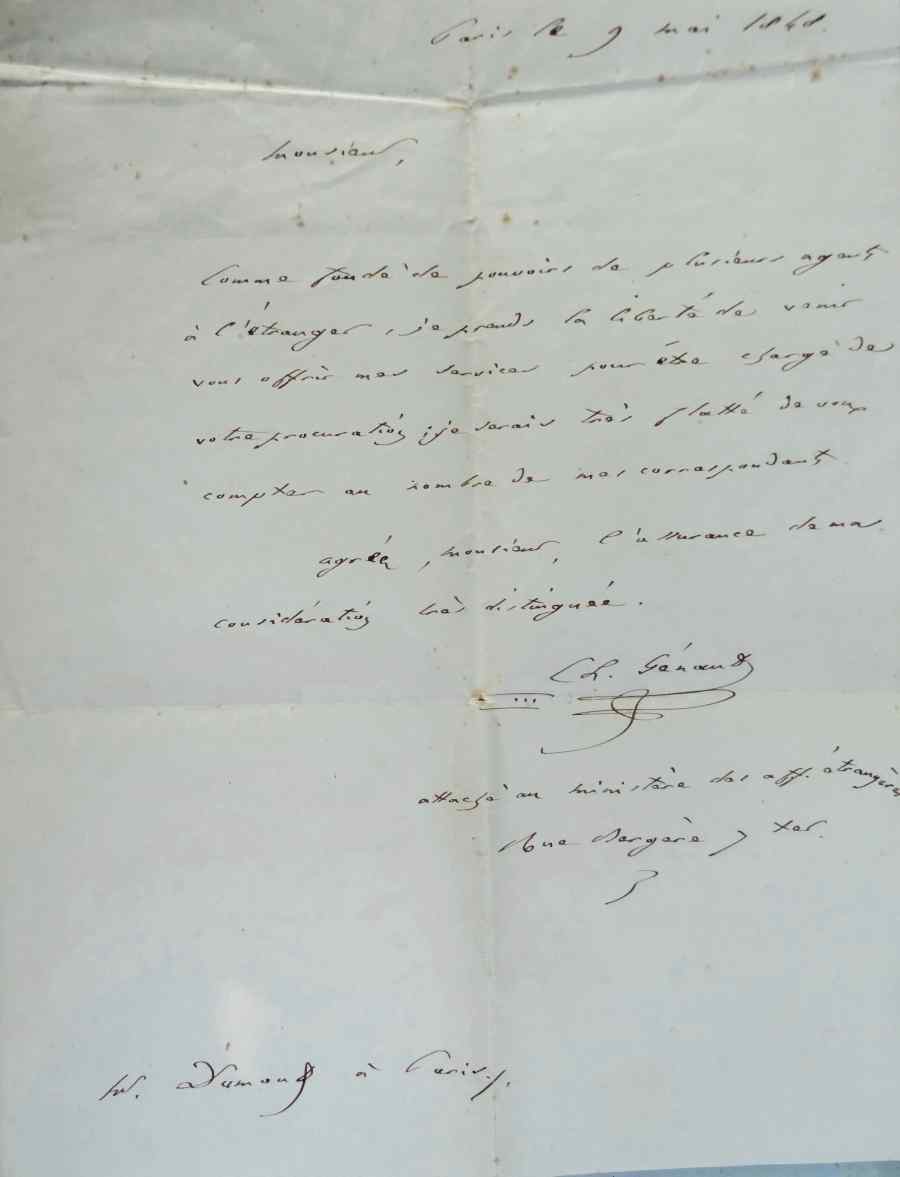 Paris le 9 mai 1848.
Monsieur,
Comme fondé de pouvoirs de plusieurs agents
à l'étranger, je prends la liberté de venir
vous offrir mes services pour être chargé de
votre procuration ; je serais très flatté de vous
compter au nombre de mes correspondants.
agréez, monsieur, l'assurance de ma
considération très distinguée.
Ch. Génaud
attaché au ministère des aff. étrangères
Rue Bergère 7
M. à Paris.